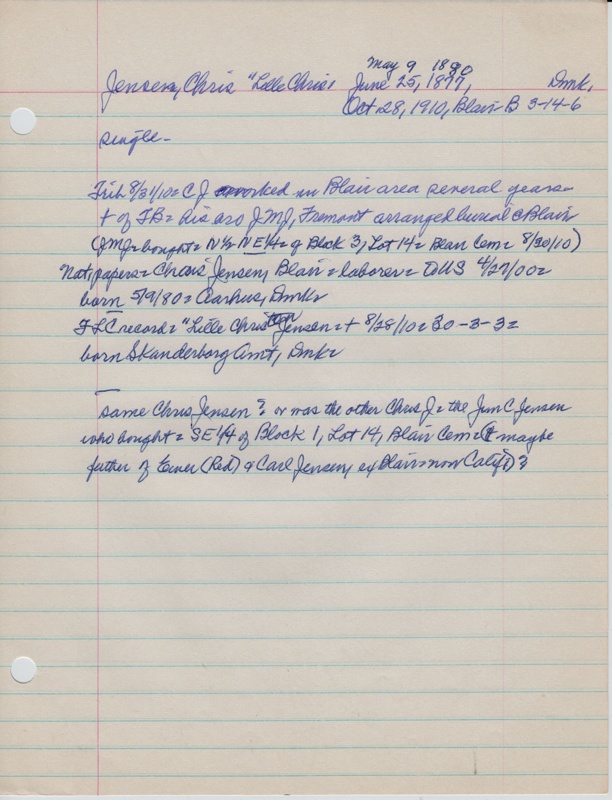 May 9 1880
Jensen, Chris "Lille Chris" June 25, 1877, Dmk,
Oct 28, 1910, Blair B 3-14-6
single-
Trib 8/31/10= C J worked in Blair area several years=
+ of TB= his bro J.M.J, Fremont arranged burial @ Blair
(JMJ= bought= N ½= N E 1/4= of Block 3, Lot 14= Blair Cem= 8/30/10)
Nat, papers= Chris Jensen, Blair= laborer= to US 4/27/00=
born 5/9/80= Aarhus, Dmk=
FLC record= "Lille Christen Jensen= + 8/28/10= 30-3-3=
born Skanderborg Amt, Dmk=
same Chris Jensen? or was the other Chris J= the Jim C Jensen
who bought= SE 1/4 of Block 1, Lot 14, Blair Cem= (+ maybe
father of Einer (Red) & Carl Jensen, ex Blair= now Calif)?